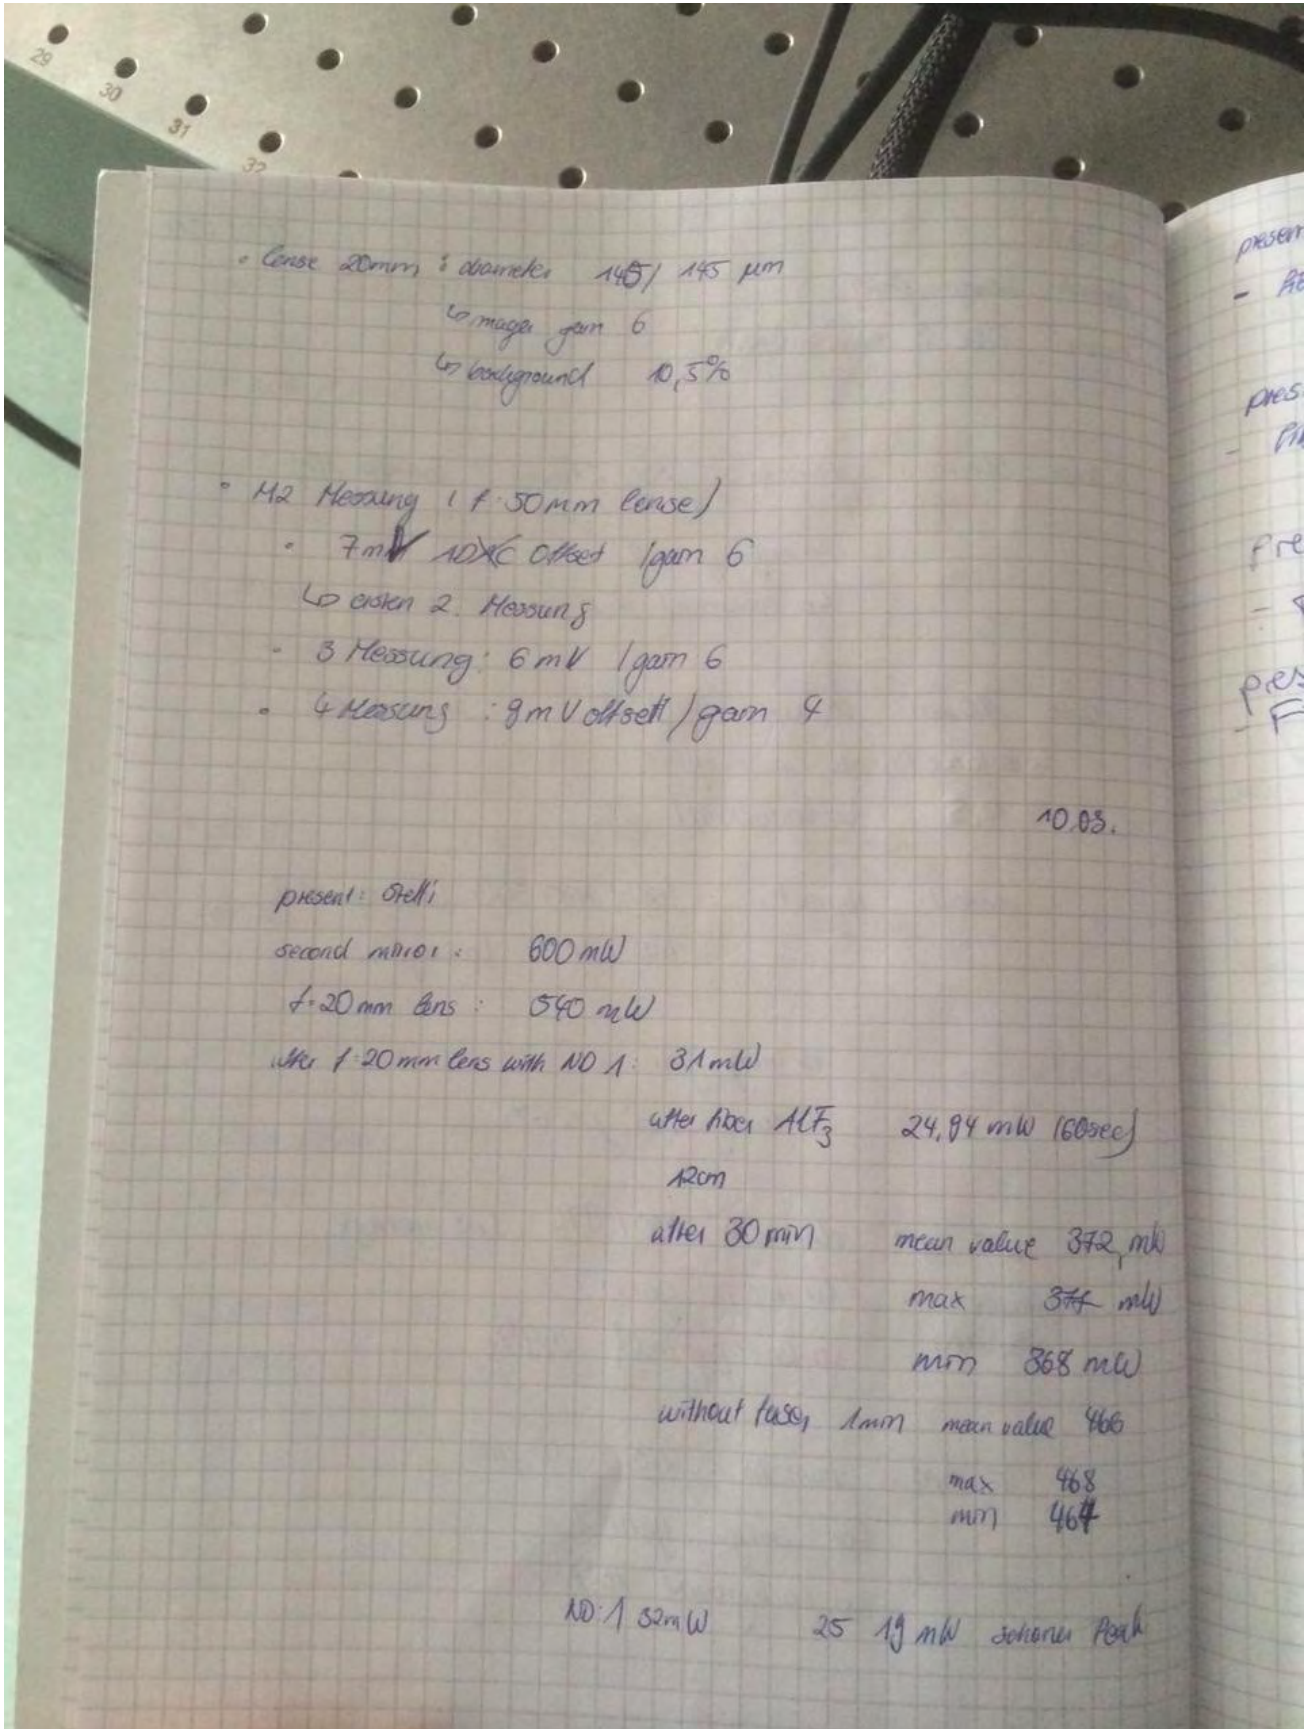 29
30
31
32
• lense 20mm : diameter 145/ 145 µm
↳ gain 6
↳ background 10,5%
• M2 Messung ( f=50mm lense)
• 7mV Offset /gain 6
↳ ersten 2. Messung
• 3 Messung: 6mV /gain 6
• 4 Messung : 9mV offsett /gain 4
10.03.
present: Steffi
second mirror : 600 mW
f=20mm lens : 540 mW
after f=20mm lens with ND 1: 31mW
after fiber AlF3 24,94 mW (60sec)
12cm
after 30min mean value 372, mW
max 377 mW
min 368 mW
without 1min mean value 466
max 468
min 464
ND:1 32mW 25 19 mW schöner Peak
presen
-
pres
-
pre
-
pres
- F